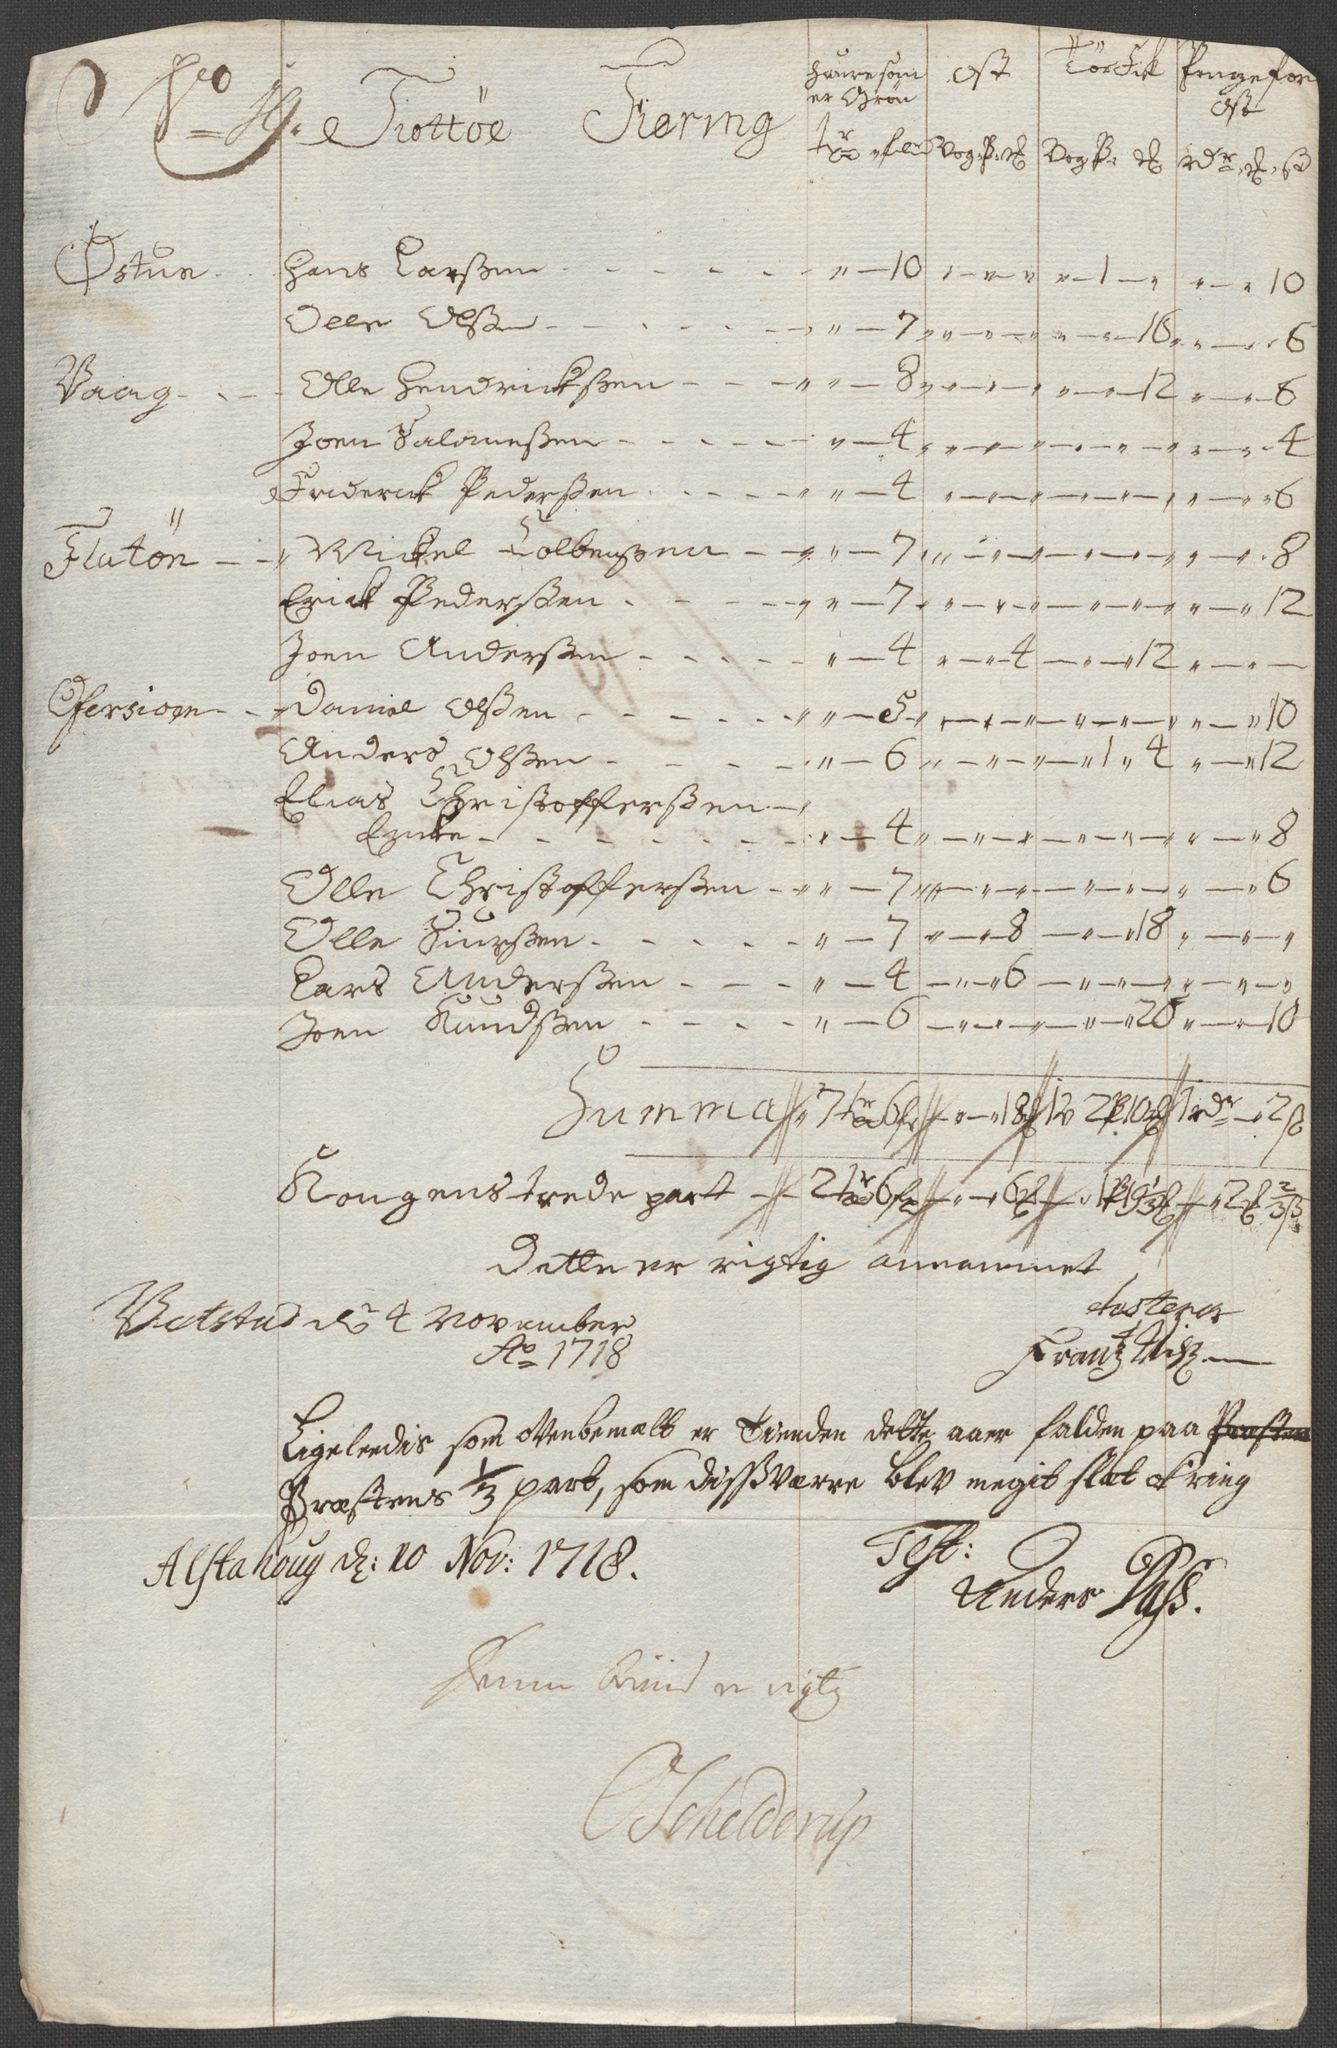 No 19. Tiottöe Fiering
haure som er Grön
Ost
Törfisk
Penge for Ost
Östun Hans Larßen 10 1 10
Olle Olßen 7 16 6
Vaag Olle Hendrickßen 8 12 6
Joen Salomeßen 4 4
Friderick Pederßen 4 6
Flatön Mickel Tolbenßen 7 8
Erick Pederßen 7 12
Joen Anderßen 4 4 12
Ofersioen Daniel Olßen 5 10
Anders Olßen 6 1 4 12
Elias Christofferßen
Encke 4 8
Olle Christofferßen 7 6
Olle Siurßen 7 8 18
Lars Anderßen 4 6
Joen Knudßen 6 20 10
Summa 7 6 18 1 2 10 1 2
Kongens trede part 2 6 6 1 19 1/3 2 2/3
Dette er rigtig annammet
Vatstad d 4 November
Ao 1718
Frantz
Ligeleedis som ovenbemelt er Tienden dette aaer falden paa Præsten
Præstens 1/3 part, som dissværre blev megit slæt oc ring
Alstahoug d: 10 Nov: 1718.
Test:
Anders Dass.
Schelderup